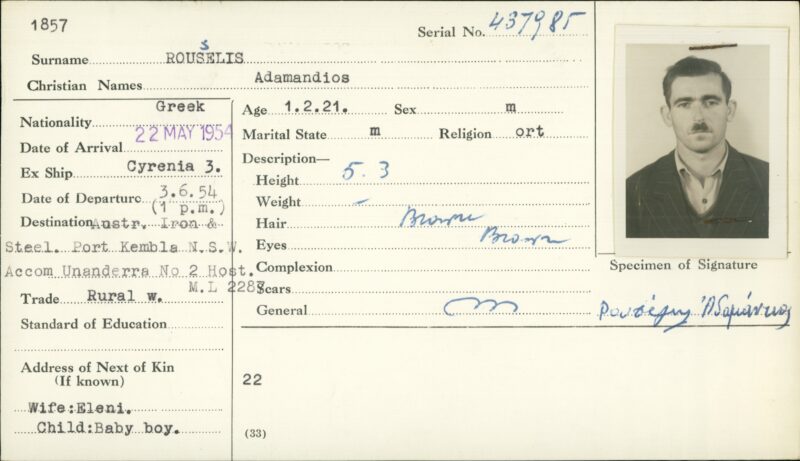 1857
Serial No. 437985
Surname ROUSELIS
S
Christian Names Adamandios
Nationality Greek
Date of Arrival 22 MAY 1954
Ex Ship Cyrenia 3.
Date of Departure 3.6.54
(1 p.m.)
Destination Austr. Iron &
Steel. Port Kembla N.S.W.
Accom Unanderra No 2 Host.
M.L 2287
Trade Rural w.
Standard of Education
Address of Next of Kin
(If known)
Wife:Eleni.
Child:Baby boy.
Age 1.2.21. Sex m
Marital State m Religion ort
Description—
Height 5.3
Weight -
Hair Brown
Eyes Brown
Complexion
Scars
General
22
(33)
Specimen of Signature
Ρουσέλης Αδαμάντιος